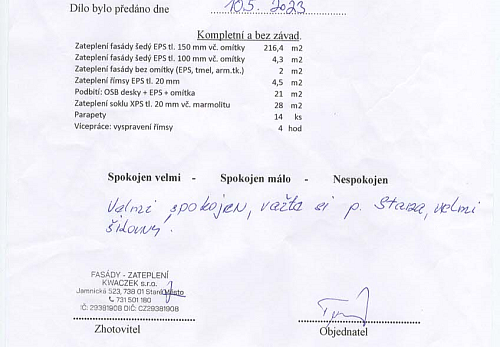 Dílo bylo předáno dne 10.5. 2023
Kompletní a bez závad.
Zateplení fasády šedý EPS tl. 150 mm vč. omítky 216,4 m2
Zateplení fasády šedý EPS tl. 100 mm vč. omítky 4,3 m2
Zateplení fasády bez omítky (EPS, tmel, arm.tk.) 2 m2
Zateplení římsy EPS tl. 20 mm 4,5 m2
Podbití: OSB desky + EPS + omítka 21 m2
Zateplení soklu XPS tl. 20 mm vč. marmolitu 28 m2
Parapety 14 ks
Vícepráce: vyspravení římsy 4 hod
Spokojen velmi - Spokojen málo - Nespokojen
Velmi spokojen, si p. velmi
FASÁDY - ZATEPLENÍ
KWACZEK s.r.o.
Jamnická 523, 738 01 Staré Město
731 501 180
IČ: 29381908 DIČ: CZ29381908
Zhotovitel
Objednatel